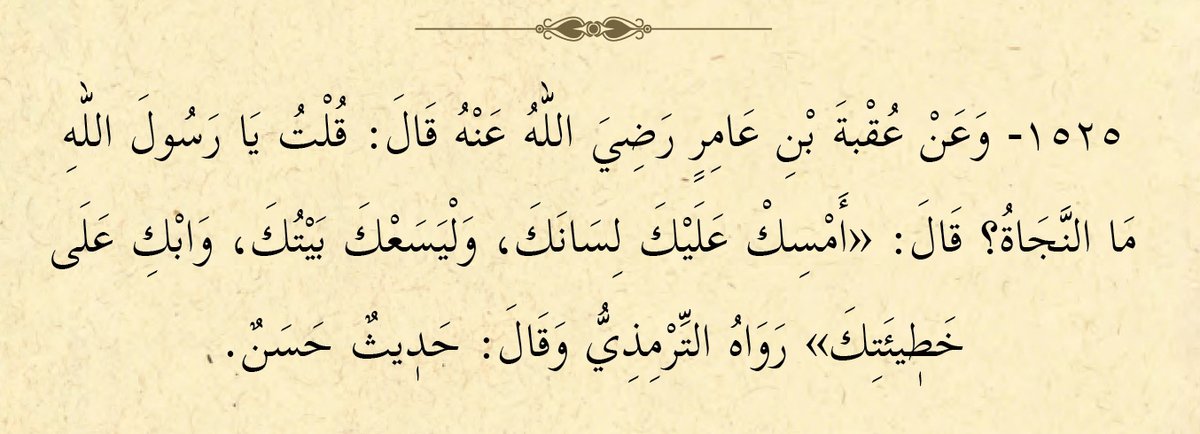 ١٥٢٥- وَعَنْ عُقْبةَ بْنِ عَامِرٍ رَضِيَ اللهُ عَنْهُ قَالَ: قُلْتُ يَا رَسُولَ اللهِ
مَا النَّجَاةُ؟ قَالَ: «أَمْسِكْ عَلَيْكَ لِسَانَكَ، وَلْيَسَعْكَ بَيْتُكَ، وَابْكِ عَلَى
خَطِيئَتِكَ» رَوَاهُ التِّرْمِذِيُّ وَقَالَ: حَدِيثٌ حَسَنٌ.